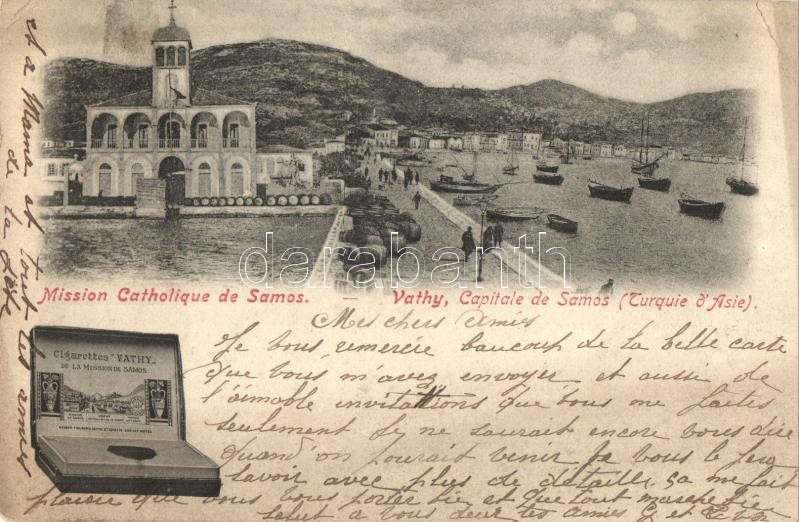 Mission Catholique de Samos. — Vathy, Capitale de Samos (Turquie d'Asie).
darabanth
Cigarettes "VATHY"
DE LA MISSION DE SAMOS
Mes chers Amis
Je vous remercie beaucoup de la belle carte
que vous m'avez envoyer et aussi de
l'aimable invitations que vous me faites
seulement je ne saurait encore vous dire
quand on pourait venir je vous le feu
savoir avec plus de détails, ça me fait
plaisir que vous vous porter bie et que tout marche bien
Salut a vous deux tes amies G et E
et a Mama et tout
de la